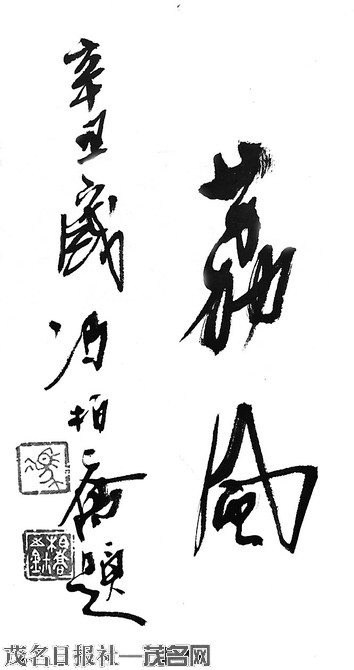 荔風
辛丑歲馮柏喬題
茂名日报社—茂名网